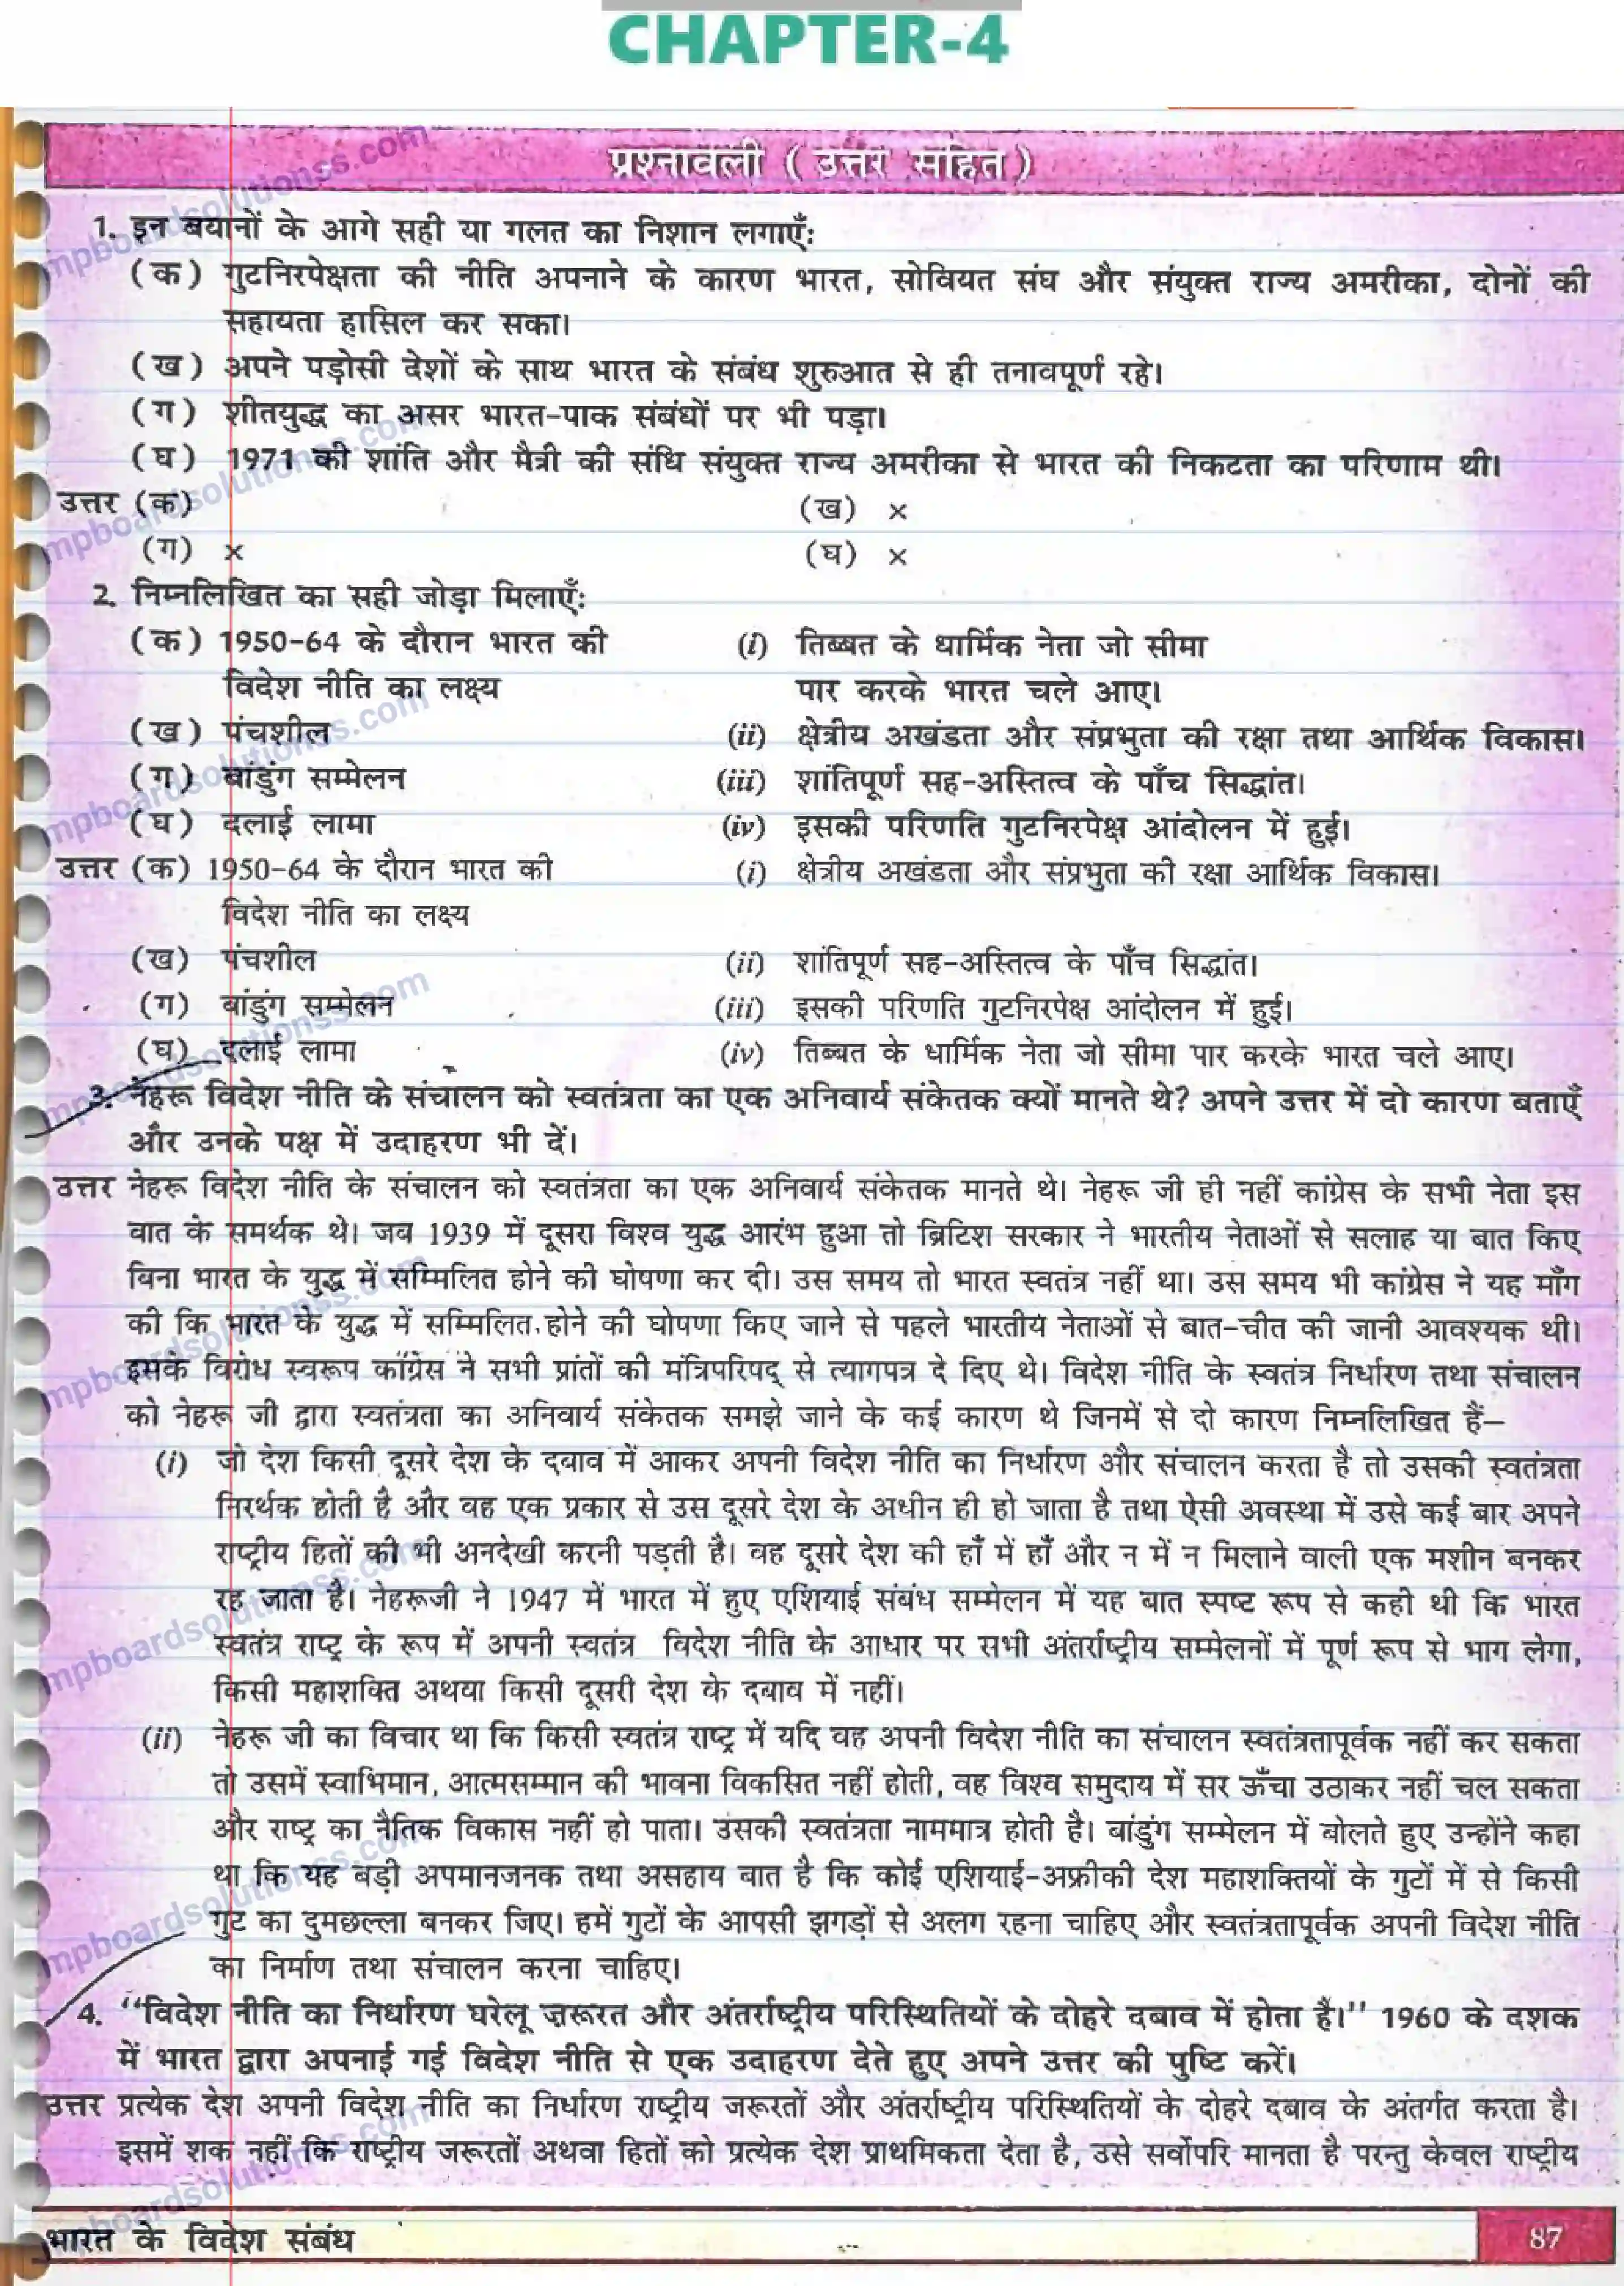 CHAPTER-4
प्रश्नावली ( उत्तर सहित )
1. इन बयानों के आगे सही या गलत का निशान लगाएँः
( क ) गुटनिरपेक्षता की नीति अपनाने के कारण भारत, सोवियत संघ और संयुक्त राज्य अमरीका, दोनों की
सहायता हासिल कर सका।
( ख ) अपने पड़ोसी देशों के साथ भारत के संबंध शुरुआत से ही तनावपूर्ण रहे।
( ग ) शीतयुद्ध का असर भारत-पाक संबंधों पर भी पड़ा।
( घ ) 1971 की शांति और मैत्री की संधि संयुक्त राज्य अमरीका से भारत की निकटता का परिणाम थी।
उत्तर (क) (ख) ×
(ग) × (घ) ×
2. निम्नलिखित का सही जोड़ा मिलाएँः
( क ) 1950-64 के दौरान भारत की (i) तिब्बत के धार्मिक नेता जो सीमा
विदेश नीति का लक्ष्य पार करके भारत चले आए।
( ख ) पंचशील (ii) क्षेत्रीय अखंडता और संप्रभुता की रक्षा तथा आर्थिक विकास।
( ग ) बांडुंग सम्मेलन (iii) शांतिपूर्ण सह-अस्तित्व के पाँच सिद्धांत।
( घ ) दलाई लामा (iv) इसकी परिणति गुटनिरपेक्ष आंदोलन में हुई।
उत्तर (क) 1950-64 के दौरान भारत की (i) क्षेत्रीय अखंडता और संप्रभुता की रक्षा आर्थिक विकास।
विदेश नीति का लक्ष्य
(ख) पंचशील (ii) शांतिपूर्ण सह-अस्तित्व के पाँच सिद्धांत।
(ग) बांडुंग सम्मेलन (iii) इसकी परिणति गुटनिरपेक्ष आंदोलन में हुई।
(घ) दलाई लामा (iv) तिब्बत के धार्मिक नेता जो सीमा पार करके भारत चले आए।
3. नेहरू विदेश नीति के संचालन को स्वतंत्रता का एक अनिवार्य संकेतक क्यों मानते थे? अपने उत्तर में दो कारण बताएँ
और उनके पक्ष में उदाहरण भी दें।
उत्तर नेहरू विदेश नीति के संचालन को स्वतंत्रता का एक अनिवार्य संकेतक मानते थे। नेहरू जी ही नहीं कांग्रेस के सभी नेता इस
बात के समर्थक थे। जब 1939 में दूसरा विश्व युद्ध आरंभ हुआ तो ब्रिटिश सरकार ने भारतीय नेताओं से सलाह या बात किए
बिना भारत के युद्ध में सम्मिलित होने की घोषणा कर दी। उस समय तो भारत स्वतंत्र नहीं था। उस समय भी कांग्रेस ने यह माँग
की कि भारत के युद्ध में सम्मिलित होने की घोषणा किए जाने से पहले भारतीय नेताओं से बात-चीत की जानी आवश्यक थी।
इसके विरोध स्वरूप कांग्रेस ने सभी प्रांतों की मंत्रिपरिषद् से त्यागपत्र दे दिए थे। विदेश नीति के स्वतंत्र निर्धारण तथा संचालन
को नेहरू जी द्वारा स्वतंत्रता का अनिवार्य संकेतक समझे जाने के कई कारण थे जिनमें से दो कारण निम्नलिखित हैं–
(i) जो देश किसी दूसरे देश के दबाव में आकर अपनी विदेश नीति का निर्धारण और संचालन करता है तो उसकी स्वतंत्रता
निरर्थक होती है और वह एक प्रकार से उस दूसरे देश के अधीन ही हो जाता है तथा ऐसी अवस्था में उसे कई बार अपने
राष्ट्रीय हितों की भी अनदेखी करनी पड़ती है। वह दूसरे देश की हाँ में हाँ और न में न मिलाने वाली एक मशीन बनकर
रह जाता है। नेहरूजी ने 1947 में भारत में हुए एशियाई संबंध सम्मेलन में यह बात स्पष्ट रूप से कही थी कि भारत
स्वतंत्र राष्ट्र के रूप में अपनी स्वतंत्र विदेश नीति के आधार पर सभी अंतर्राष्ट्रीय सम्मेलनों में पूर्ण रूप से भाग लेगा,
किसी महाशक्ति अथवा किसी दूसरी देश के दबाव में नहीं।
(ii) नेहरू जी का विचार था कि किसी स्वतंत्र राष्ट्र में यदि वह अपनी विदेश नीति का संचालन स्वतंत्रतापूर्वक नहीं कर सकता
तो उसमें स्वाभिमान, आत्मसम्मान की भावना विकसित नहीं होती, वह विश्व समुदाय में सर ऊँचा उठाकर नहीं चल सकता
और राष्ट्र का नैतिक विकास नहीं हो पाता। उसकी स्वतंत्रता नाममात्र होती है। बांडुंग सम्मेलन में बोलते हुए उन्होंने कहा
था कि यह बड़ी अपमानजनक तथा असहाय बात है कि कोई एशियाई-अफ्रीकी देश महाशक्तियों के गुटों में से किसी
गुट का दुमछल्ला बनकर जिए। हमें गुटों के आपसी झगड़ों से अलग रहना चाहिए और स्वतंत्रतापूर्वक अपनी विदेश नीति
का निर्माण तथा संचालन करना चाहिए।
4. "विदेश नीति का निर्धारण घरेलू ज़रूरत और अंतर्राष्ट्रीय परिस्थितियों के दोहरे दबाव में होता है।" 1960 के दशक
में भारत द्वारा अपनाई गई विदेश नीति से एक उदाहरण देते हुए अपने उत्तर की पुष्टि करें।
उत्तर प्रत्येक देश अपनी विदेश नीति का निर्धारण राष्ट्रीय जरूरतों और अंतर्राष्ट्रीय परिस्थितियों के दोहरे दबाव के अंतर्गत करता है।
इसमें शक नहीं कि राष्ट्रीय जरूरतों अथवा हितों को प्रत्येक देश प्राथमिकता देता है, उसे सर्वोपरि मानता है परन्तु केवल राष्ट्रीय
भारत के विदेश संबंध 87
mpboardsolutionss.com
mpboardsolutionss.com
mpboardsolutionss.com
mpboardsolutionss.com
mpboardsolutionss.com
mpboardsolutionss.com
mpboardsolutionss.com
mpboardsolutionss.com